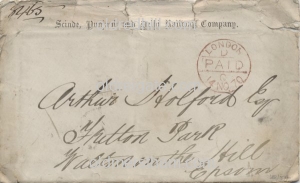 Scinde, Punjaub and Delhi Railway Company.
LONDON
PAID
Arthur Holford Esq
Hutton Park
Walton on the Hill
Epsom